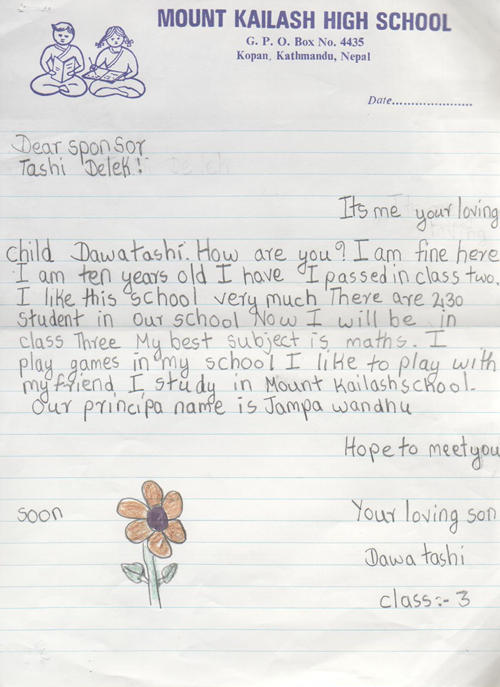 MOUNT KAILASH HIGH SCHOOL
G. P. O. Box No. 4435
Kopan, Kathmandu, Nepal
Date.....................
Dear sponsor
Tashi Delek!
Its me your loving
child Dawatashi. How are you? I am fine here
I am ten years old I have I passed in class two.
I like this school very much There are 230
student in our school Now I will be in
class Three My best subject is maths. I
play games in my school I like to play with
my friend I study in Mount Kailash school.
Our principa name is Jampa wandhu
Hope to meet you
soon
Your loving son
Dawa tashi
class:- 3